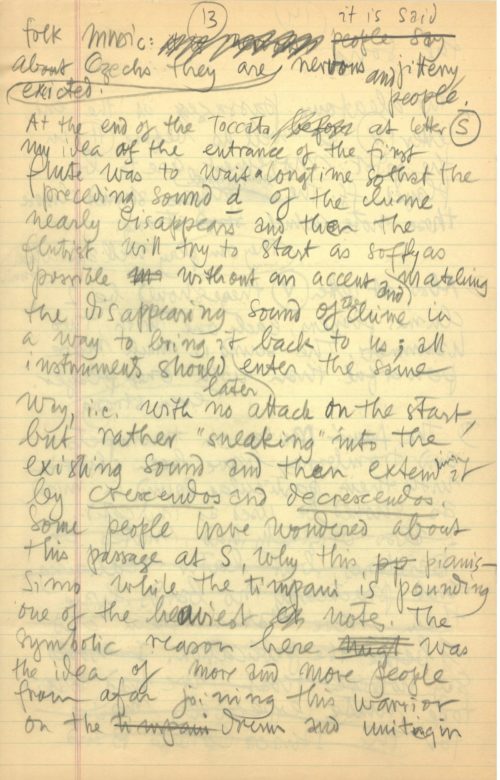 13
it is said
folk music: people say
about Czechs they are nervous and jittery
excited. people.
At the end of the Toccata before at letter S
my idea of the entrance of the first
flute was to wait a long time so that the
preceding sound d of the chime
nearly disappears and then the
flutist will try to start as softly as
possible without an accent and matching
the disappearing sound of the chime in
a way to bring it back to us; all
instruments should enter the same
later
way, i.e. with no attack on the start,
but rather "sneaking" into the
existing sound and then extending it
by crescendos and decrescendos.
Some people have wondered about
this passage at S, why this pp pianis-
simo while the timpani is pounding
one of the heaviest notes. The
symbolic reason here might was
the idea of more and more people
from afar joining this warrior
on the timpani drum and uniting in